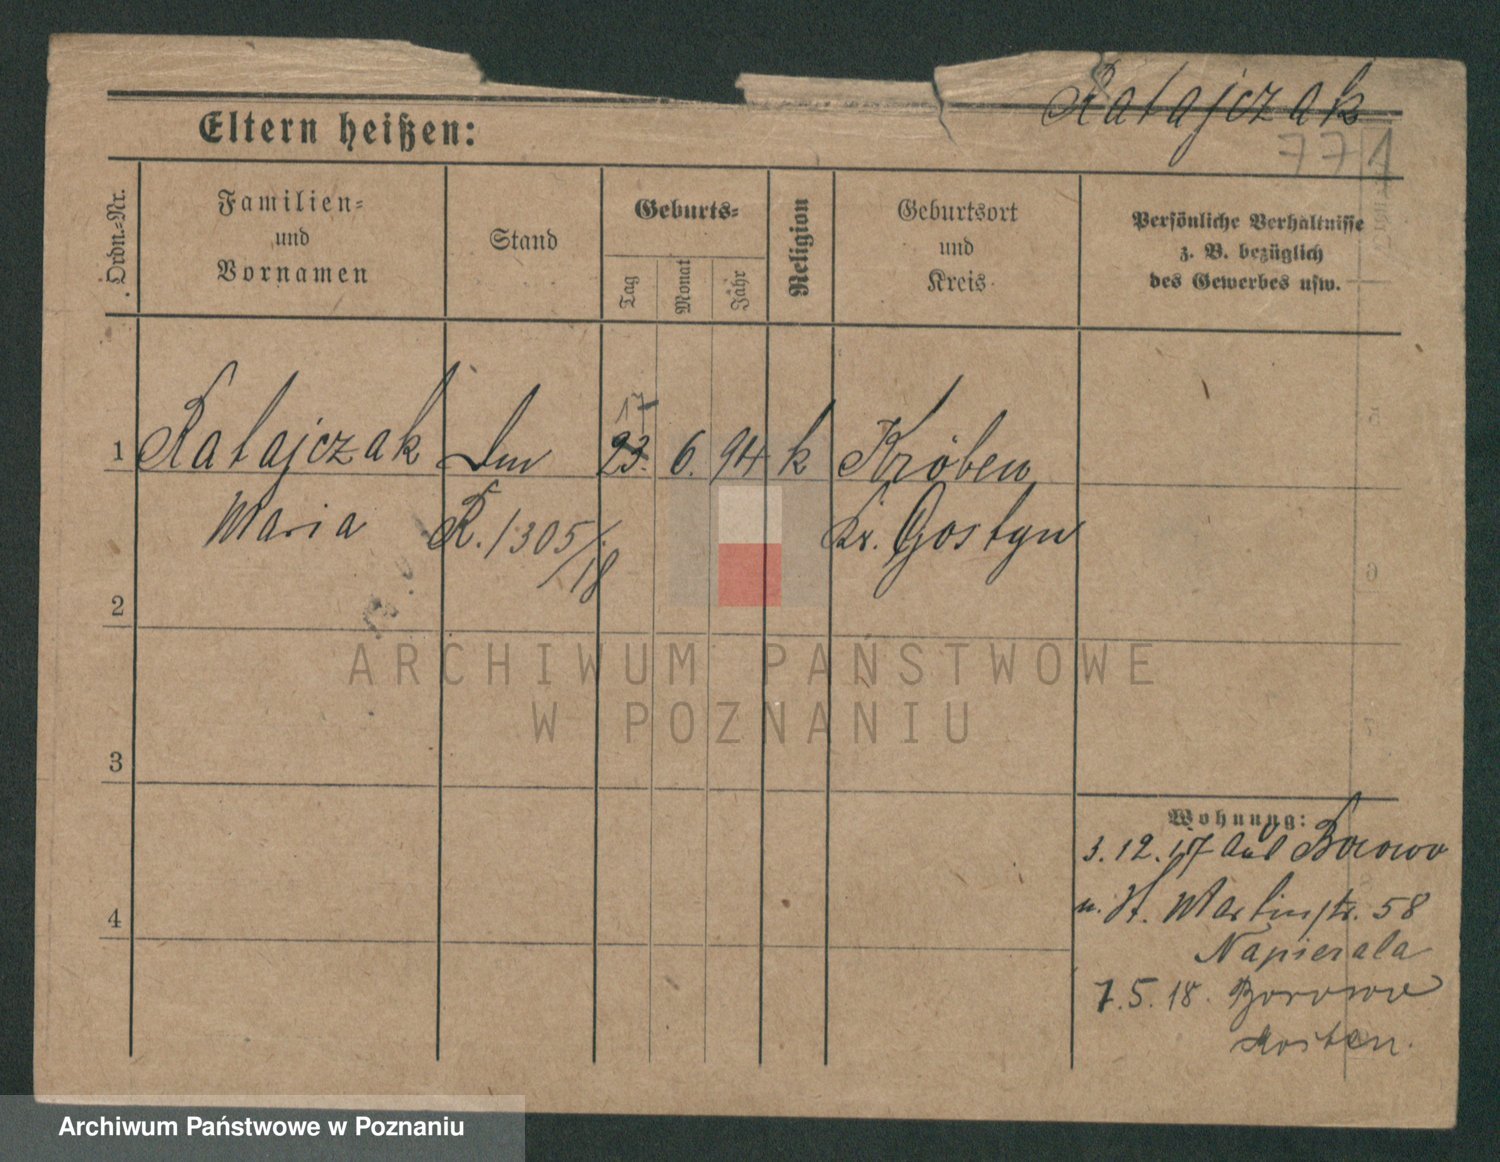 Ratajczak
Eltern heißen:
771
Ordn.-Nr.
Familien-
und
Vornamen
Stand
Geburts-
Tag
Monat
Jahr
Religion
Geburtsort
und
Kreis
Persönliche Verhältnisse
z. B. bezüglich
des Gewerbes usw.
17
1 Ratajczak 23. 6. 94 k Kröben
Maria R. 1305/18 Kr. Gostyn
2
ARCHIWUM PAŃSTWOWE
W POZNANIU
3
Wohnung:
3. 12. 17 aus Borowo
n. St. Martinstr. 58
4
Napierala
7. 5. 18. Borowo
Kosten.
Archiwum Państwowe w Poznaniu